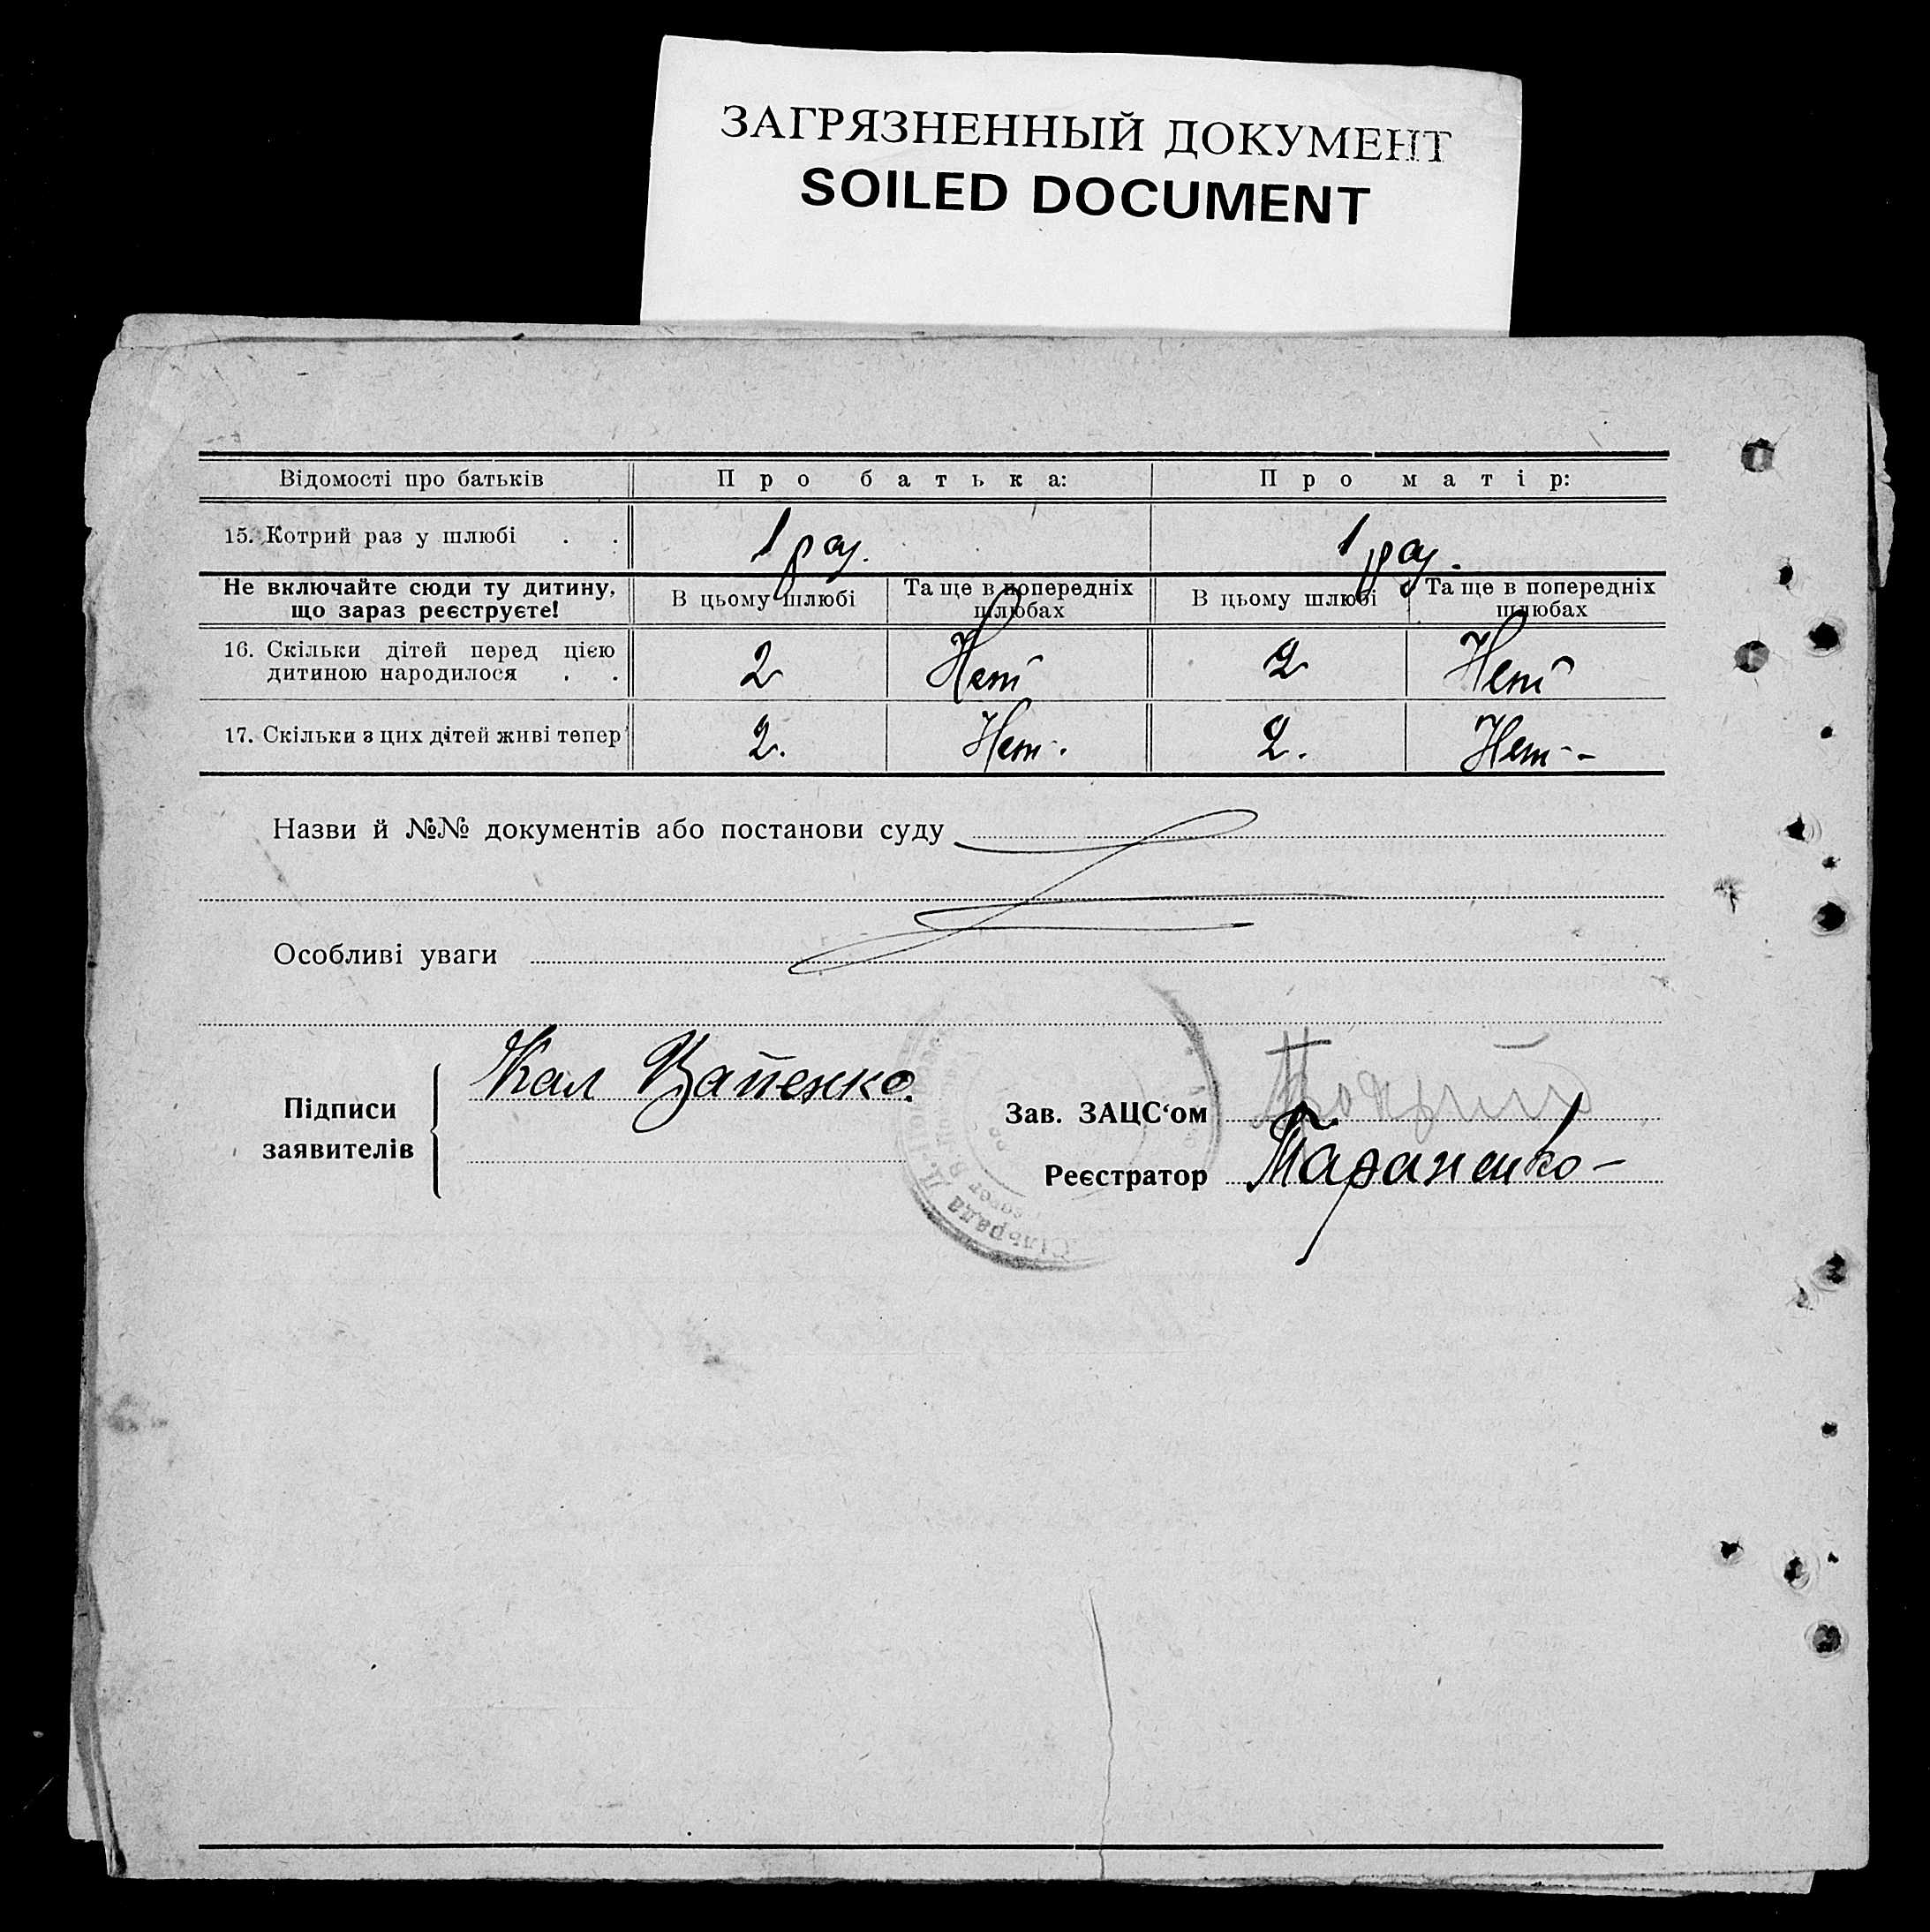 ЗАГРЯЗНЕННЫЙ ДОКУМЕНТ
SOILED DOCUMENT
Відомості про батьків Про батька: Про матір:
15. Котрий раз у шлюбі . . 1 раз. 1 раз.
Не включайте сюди ту дитину, що зараз реєструєте! В цьому шлюбі Та ще в попередніх шлюбах В цьому шлюбі Та ще в попередніх шлюбах
16. Скільки дітей перед цією
дитиною народилося . . 2 Нет 2 Нет
17. Скільки з цих дітей живі тепер 2. Нет. 2. Нет-
Назви й №№ документів або постанови суду
Особливі уваги
Підписи заявителів
Цапенко.
Зав. ЗАЦС‘ом
Реєстратор Тараненко-
Сільрада